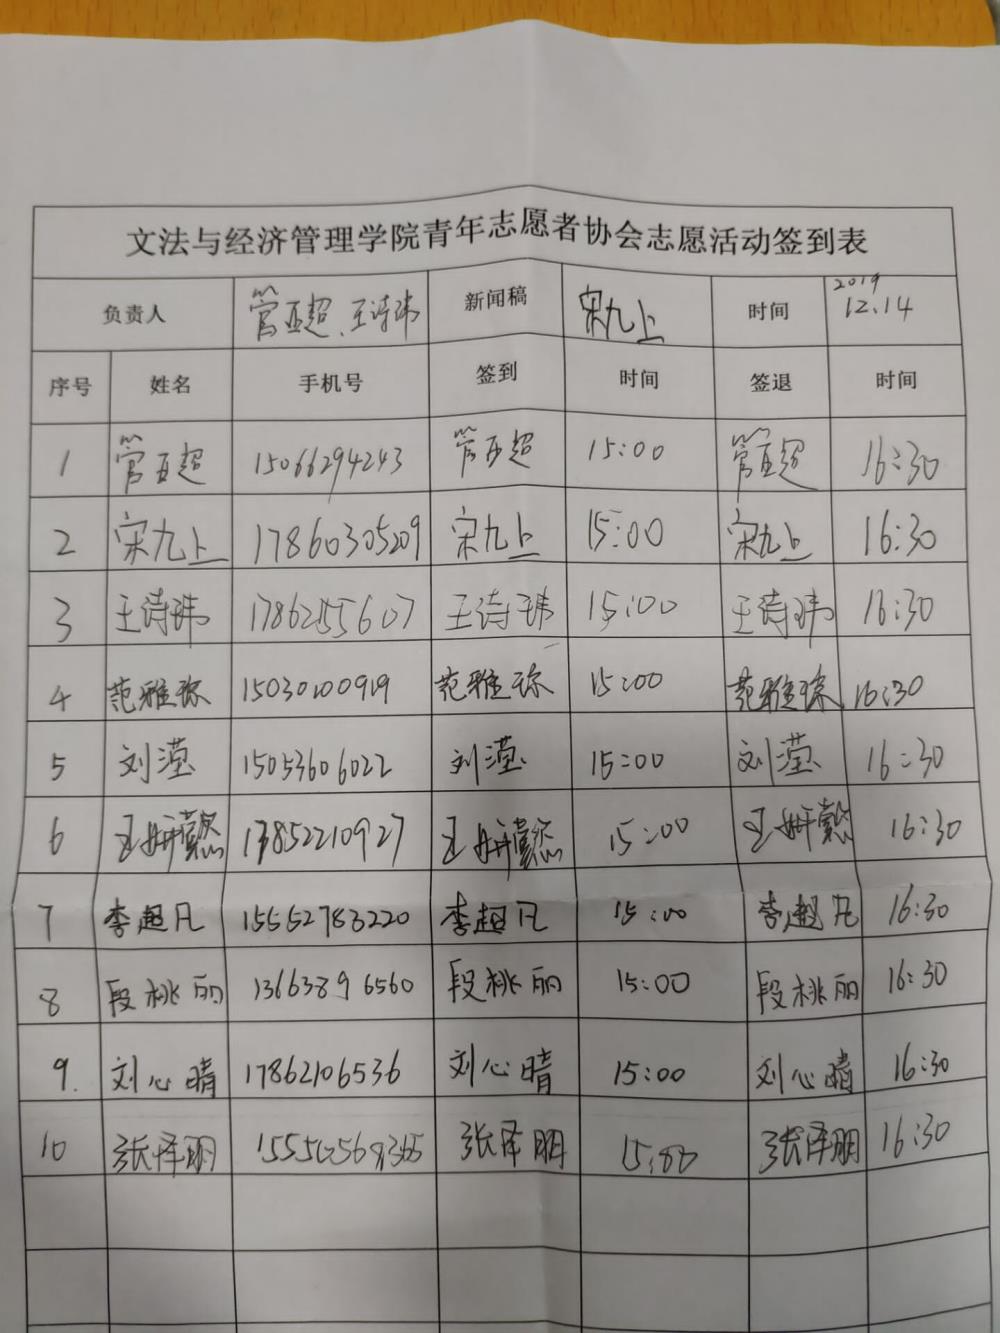 文法与经济管理学院青年志愿者协会志愿活动签到表
负责人 管亚超、王诗玮 新闻稿 宋九上 时间 2019 12.14
序号 姓名 手机号 签到 时间 签退 时间
1 管亚超 15066294243 管亚超 15:00 管亚超 16:30
2 宋九上 17860305209 宋九上 15:00 宋九上 16:30
3 王诗玮 17862155607 王诗玮 15:00 王诗玮 16:30
4 范雅琼 15030100919 范雅琼 15:00 范雅琼 16:30
5 刘滢 15053606022 刘滢 15:00 刘滢 16:30
6 王妍懿 17852210927 王妍懿 15:00 王妍懿 16:30
7 李超凡 15552783220 李超凡 15:00 李超凡 16:30
8 段桃丽 13663896560 段桃丽 15:00 段桃丽 16:30
9. 刘心晴 17862106536 刘心晴 15:00 刘心晴 16:30
10 张泽明 张泽明 15:00 张泽明 16:30